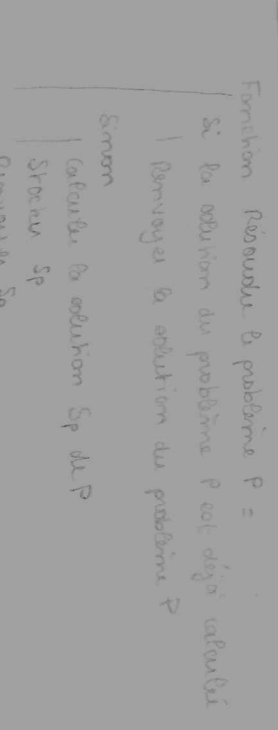 Fonction Résoudre le problème P =
Si la solution du problème P est déjà calculée
Renvoyer la solution du problème P
Sinon
Calculer la solution Sp de P
Stocker Sp
Renvoyer Sp